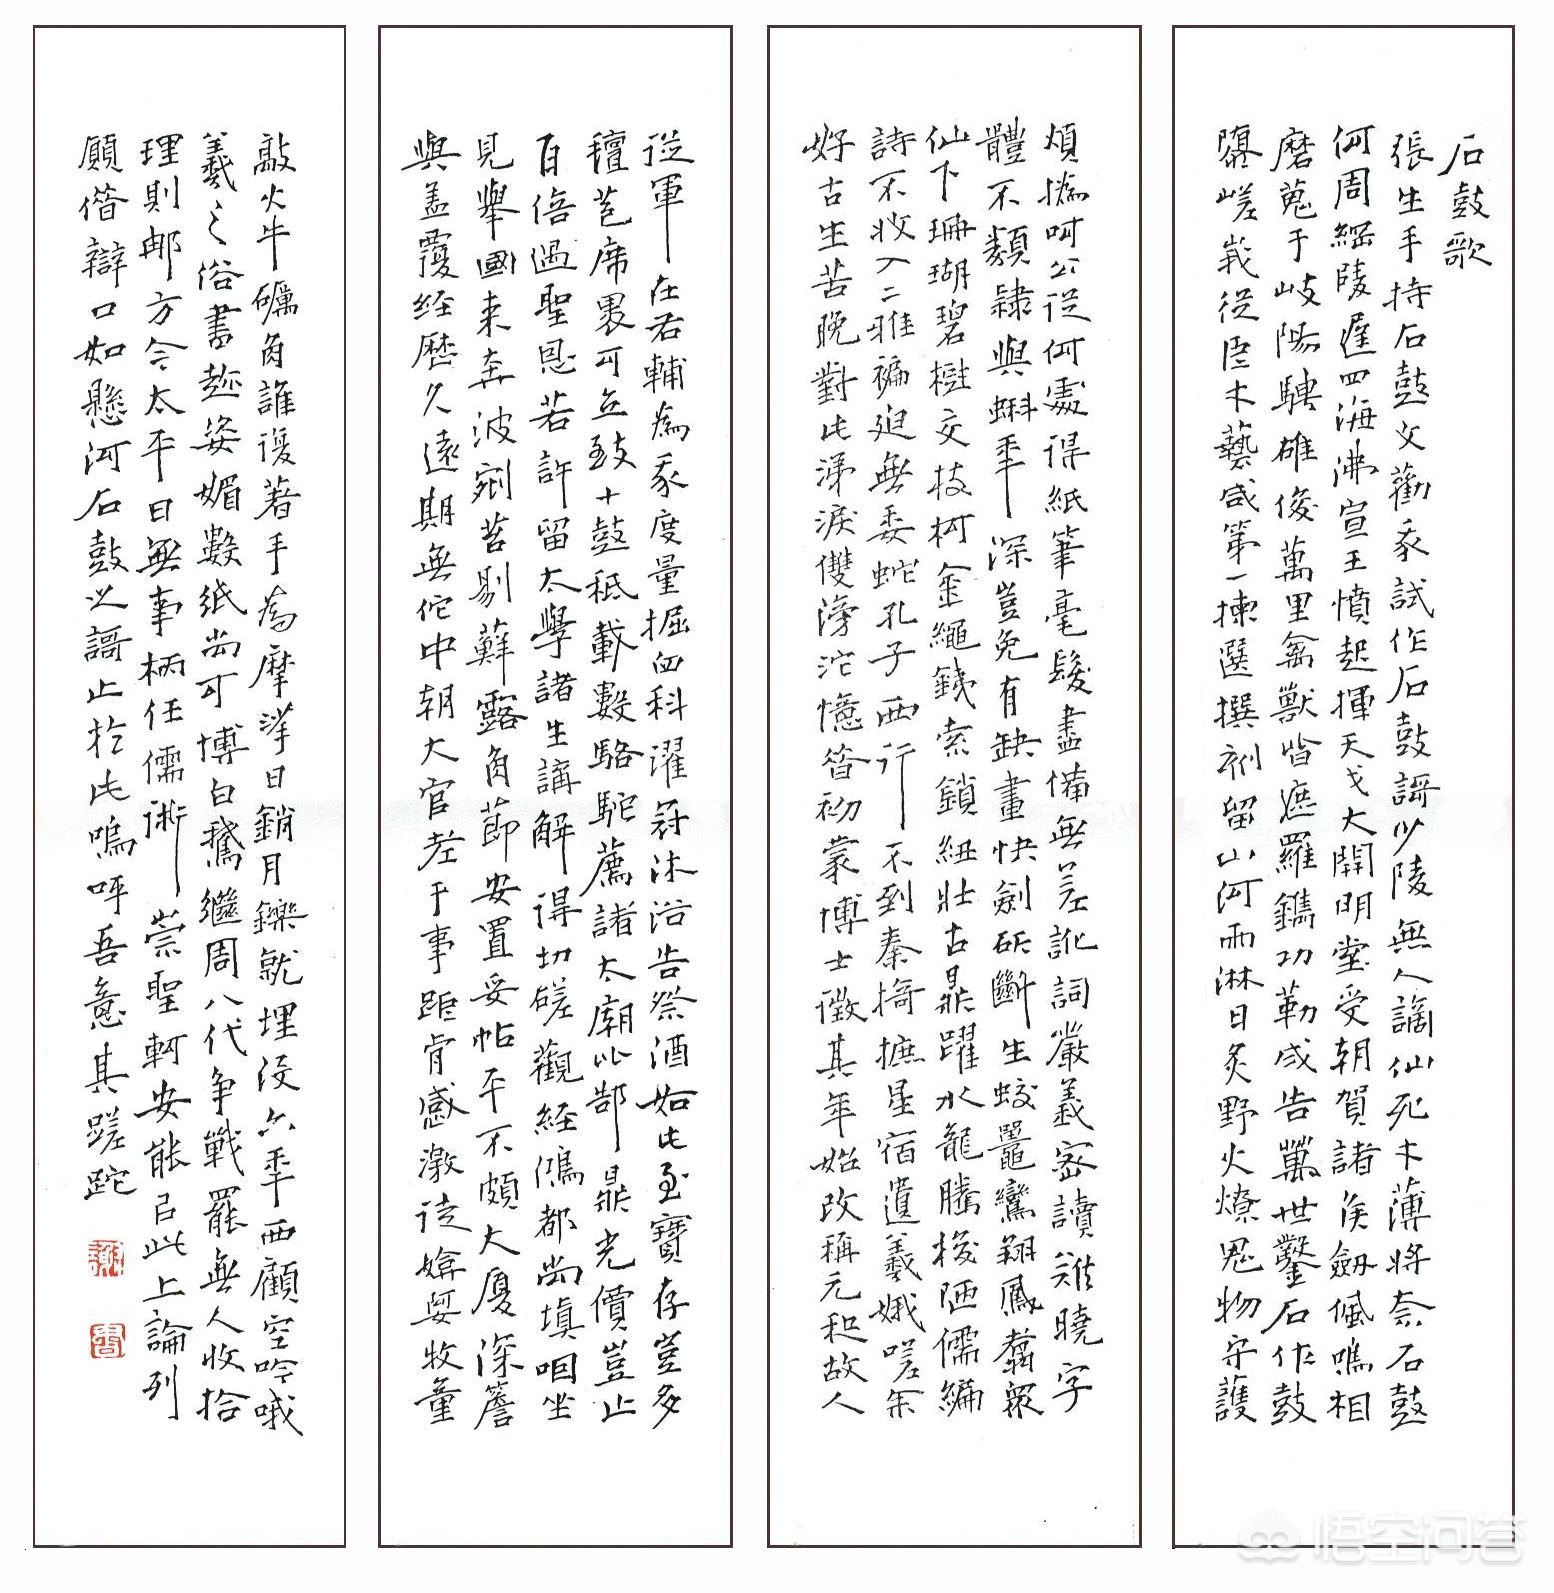 石鼓歌
張生手持石鼓文勸我試作石鼓謌少陵無人謫仙死才薄將奈石鼓
何周綱陵遲四海沸宣王憤起揮天戈大開明堂受朝賀諸侯劔佩鳴相
磨蒐于岐陽騁雄俊萬里禽獸皆遮羅鐫功勒成告萬世鑿石作鼓
隳嵯峩從臣才藝咸第一揀選撰刻留山河雨淋日炙野火燎鬼物守護
煩撝呵公從何處得紙筆毫髮盡備無差訛詞嚴義密讀難曉字
體不類隸與蝌年深豈免有缺畫快劍斫斷生蛟鼉鸞翔鳳翥眾
仙下珊瑚碧樹交枝柯金繩鐵索鎖紐壯古鼎躍水龍騰梭陋儒編
詩不收入二雅褊迫無委蛇孔子西行不到秦掎摭星宿遺羲娥嗟余
好古生苦晚對此涕淚雙滂沱憶昔初蒙博士徵其年始改稱元和故人
從軍在右輔為我度量掘臼科濯冠沐浴告祭酒如此至寶存豈多
氊苞席裹可立致十鼓秪載數駱駝薦諸太廟比郜鼎光價豈止
百倍過聖恩若許留太學諸生講解得切磋觀經鴻都尚填咽坐
見舉國来奔波剜苔剔蘚露角節安置妥帖平不頗大廈深簷
與盖覆経歷久遠期無佗中朝大官老于事詎肯感激徒媕婀牧童
敲火牛礪角誰復著手為摩挲日銷月鑠就埋没六年西顧空吟哦
羲之俗書趁姿媚數紙尚可博白鵝繼周八代爭戰罷無人收拾
理則那方今太平日無事柄任儒術崇聖軻安能以此上論列
願借辯口如懸河石鼓之謌止於此嗚呼吾意其蹉跎
悟空问答